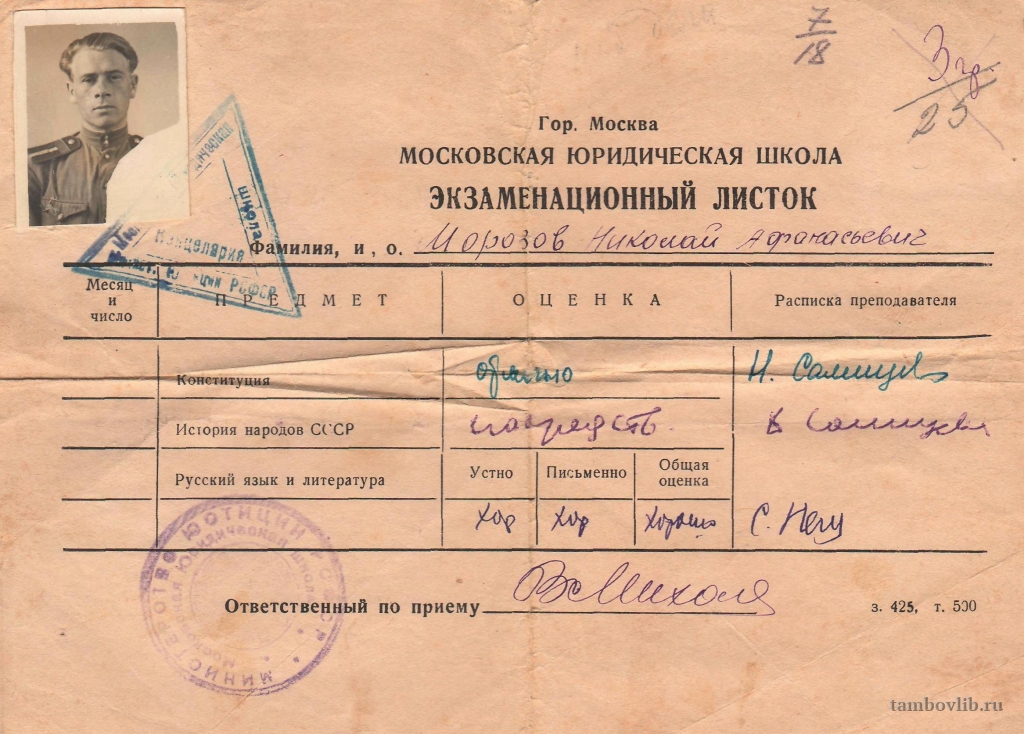 7
18
3 гр.
25
Гор. Москва
МОСКОВСКАЯ ЮРИДИЧЕСКАЯ ШКОЛА
ЭКЗАМЕНАЦИОННЫЙ ЛИСТОК
Канцелярия
школа
РСФСР
Фамилия, и, о. Морозов Николай Афанасьевич
Месяц и число ПРЕДМЕТ ОЦЕНКА Расписка преподавателя
Конституция отлично
История народов СССР посредств.
Русский язык и литература Устно Письменно Общая оценка
хор хор хорошо
МИНИСТЕРСТВО ЮСТИЦИИ
Московская юридическая школа
Ответственный по приему
з. 425, т. 500
tambovlib.ru